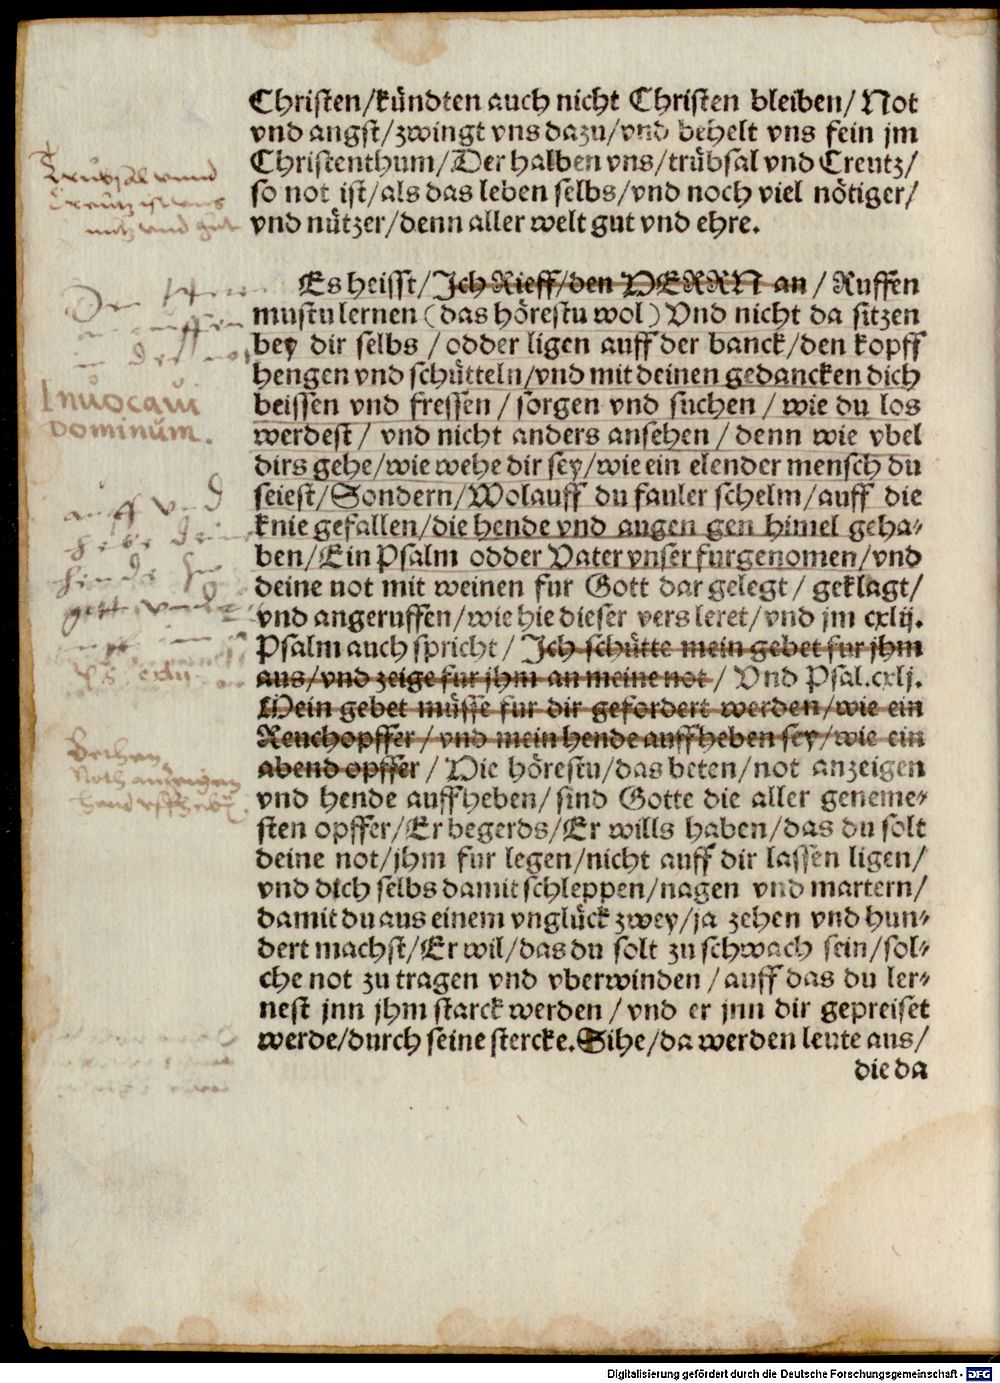 Christen/kündten auch nicht Christen bleiben/Not
vnd angst/zwingt vns dazu/vnd behelt vns fein jm
Christenthum/Der halben vns/trübsal vnd Creutz/
so not ist/als das leben selbs/vnd noch viel nötiger/
vnd nützer/denn aller welt gut vnd ehre.
Trübsal vnnd
Creütz ist vns
nutz vnd gut
Es heisst/Jch Rieff/den HERRN an/Ruffen
mustu lernen (das hörestu wol) Vnd nicht da sitzen
bey dir selbs/odder ligen auff der banck/den kopff
hengen vnd schütteln/vnd mit deinen gedancken dich
beissen vnd fressen/sorgen vnd suchen/wie du los
werdest/vnd nicht anders ansehen/denn wie vbel
dirs gehe/wie wehe dir sey/wie ein elender mensch du
seiest/Sondern/Wolauff du fauler schelm/auff die
knie gefallen/die hende vnd augen gen himel geha-
ben/Ein Psalm odder Vater vnser furgenomen/vnd
deine not mit weinen fur Gott dar gelegt/geklagt/
vnd angeruffen/wie hie dieser vers leret/vnd jm cxlij.
Psalm auch spricht/Jch schütte mein gebet fur jhm
aus/vnd zeige fur jhm an meine not/Vnd Psal.cxlj.
Mein gebet müsse fur dir gefordert werden/wie ein
Reuchopffer/vnd mein hende auffheben sey/wie ein
abend opffer/Hie hörestu/das beten/not anzeigen
vnd hende auffheben/sind Gotte die aller geneme-
sten opffer/Er begerds/Er wills haben/das du solt
deine not/jhm fur legen/nicht auff dir lassen ligen/
vnd dich selbs damit schleppen/nagen vnd martern/
damit du aus einem vnglück zwey/ja zehen vnd hun-
dert machst/Er wil/das du solt zu schwach sein/sol-
che not zu tragen vnd vberwinden/auff das du ler-
nest jnn jhm starck werden/vnd er jnn dir gepreiset
werde/durch seine stercke.Sihe/da werden leute aus/
die da
Den
in der not
Inuocaui
dominum.
auff vnd
hebe dein
hende zu
gott vnd
ps. cxlii
Bethen
Noth anzeigen
hend vffheben
Digitalisierung gefördert durch die Deutsche Forschungsgemeinschaft - DFG